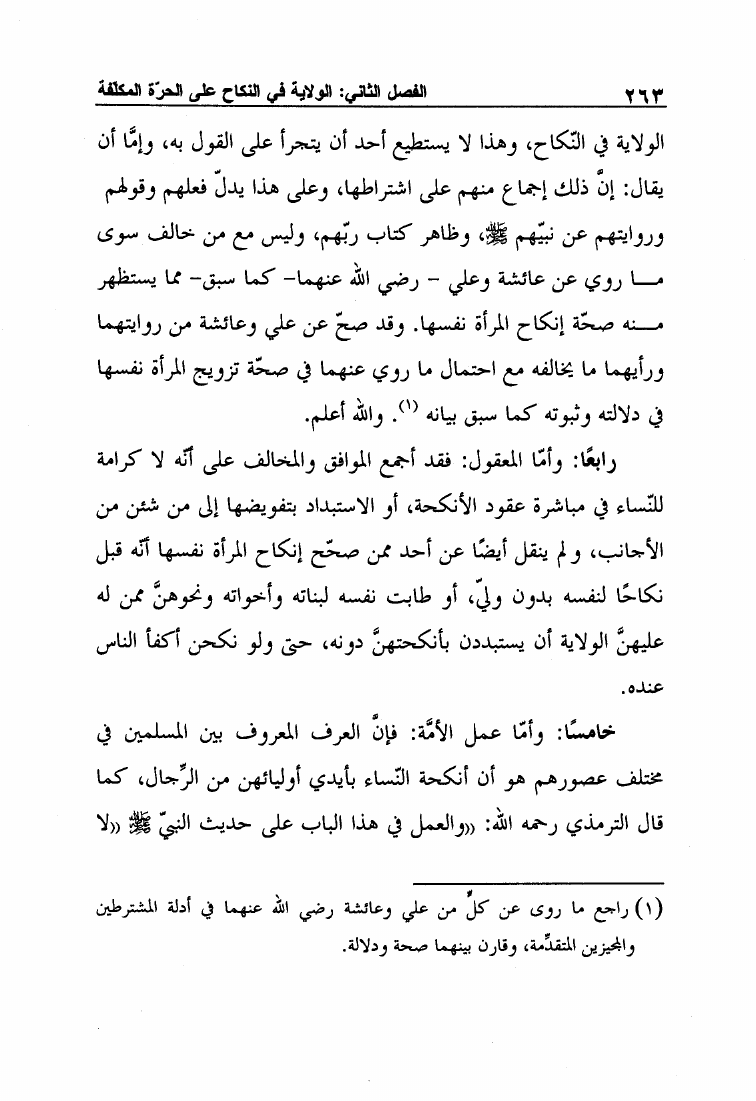 ٢٦٣ الفصل الثاني: الولاية في النكاح على الحرّة المكلّفة
الولاية في النّكاح، وهذا لا يستطيع أحد أن يتجرأ على القول به، وإمَّا أن
يقال: إنَّ ذلك إجماع منهم على اشتراطها، وعلى هذا يدلّ فعلهم وقولهم
وروايتهم عن نبيّهم ﷺ، وظاهر كتاب ربّهم، وليس مع من خالف سوى
مـــا روي عن عائشة وعلي - رضي الله عنهما- كما سبق- مما يستظهر
مـــنه صحّة إنكاح المرأة نفسها. وقد صحّ عن علي وعائشة من روايتهما
ورأيهما ما يخالفه مع احتمال ما روي عنهما في صحّة تزويج المرأة نفسها
في دلالته وثبوته كما سبق بيانه (١). والله أعلم.
رابعًا: وأمّا المعقول: فقد أجمع الموافق والمخالف على أنّه لا كرامة
للنّساء في مباشرة عقود الأنكحة، أو الاستبداد بتفويضها إلى من شئن من
الأجانب، ولم ينقل أيضًا عن أحد ممن صحّح إنكاح المرأة نفسها أنّه قبل
نكاحًا لنفسه بدون وليّ، أو طابت نفسه لبناته وأخواته ونحوهنَّ ممن له
عليهنَّ الولاية أن يستبددن بأنكحتهنَّ دونه، حتى ولو نكحن أكفأ الناس
عنده.
خامسًا: وأمّا عمل الأمَّة: فإنَّ العرف المعروف بين المسلمين في
مختلف عصورهم هو أن أنكحة النّساء بأيدي أوليائهن من الرِّجال، كما
قال الترمذي رحمه الله: ((والعمل في هذا الباب على حديث النبيّ ﷺ ((لا
(١) راجع ما روى عن كلٍّ من علي وعائشة رضي الله عنهما في أدلة المشترطين
والمجيزين المتقدِّمة، وقارن بينهما صحة ودلالة.